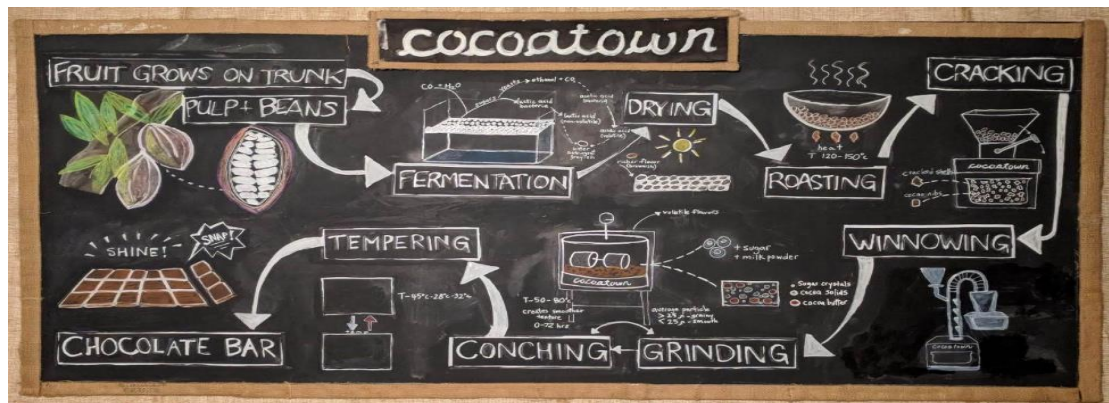 cocoatown
FRUIT GROWS ON TRUNK
PULP+ BEANS
FERMENTATION
CO₂ + H₂O
ethanol + CO₂
DRYING
ROASTING
heat
T 120-150°c
CRACKING
cocoatown
cracked shells
cocoa nibs
WINNOWING
cocoatown
GRINDING
volatile flavors
+ sugar
+ milk powder
cocoatown
sugar crystals
cocoa solids
cocoa butter
average particle
smooth
CONCHING
T-50-80°c
creates smoother
texture
0-72 hrs
TEMPERING
T-45°c-28°c-32°c
SHINE!
SNAP!
CHOCOLATE BAR